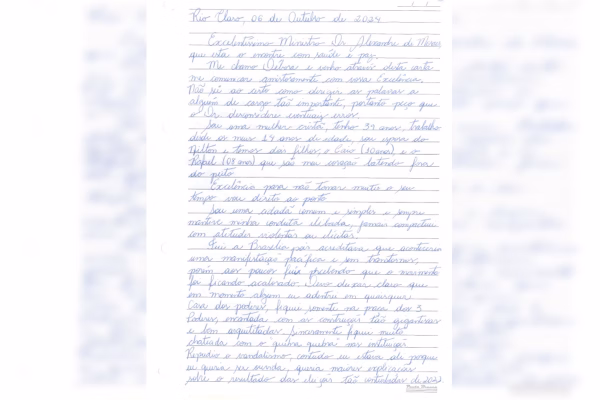 Rio Claro, 06 de Outubro de 2024
Excelentíssimo Ministro Dr Alexandre de Moraes
que esta o encontre com saúde e paz.
Me chamo Débora e venho através desta carta
me comunicar amistosamente com vossa Excelência.
Não sei ao certo como dirigir as palavras a
alguém de cargo tão importante, portanto peço que
o Dr desconsidere eventuais erros.
Sou uma mulher cristã, tenho 39 anos, trabalho
desde os meus 14 anos de idade, sou esposa do
Nilton e temos dois filhos, o Caio (10 anos) e o
Rafael (08 anos) que são meu coração batendo fora
do peito.
Excelência para não tomar muito o seu
tempo vou direto ao ponto.
Sou uma cidadã comum e simples e sempre
mantive minha conduta ilibada, jamais compactuei
com atitudes violentas ou ilícitas.
Fui a Brasília pois acreditava que aconteceria
uma manifestação pacífica e sem transtornos,
porém aos poucos fui percebendo que o movimento
foi ficando acalorado. Devo dizer claro que
em momento algum eu adentrei em quaisquer
Casa dos poderes, fiquei somente na praça dos 3
Poderes, encantada com as construções tão gigantescas
e bem arquitetadas. Sinceramente fiquei muito
chateada com o quebra quebra nas instituições
Repudio o vandalismo, contudo eu estava ali porque
eu queria ser ouvida, queria maiores explicações
sobre o resultados das eleições tão conturbadas de 2022.